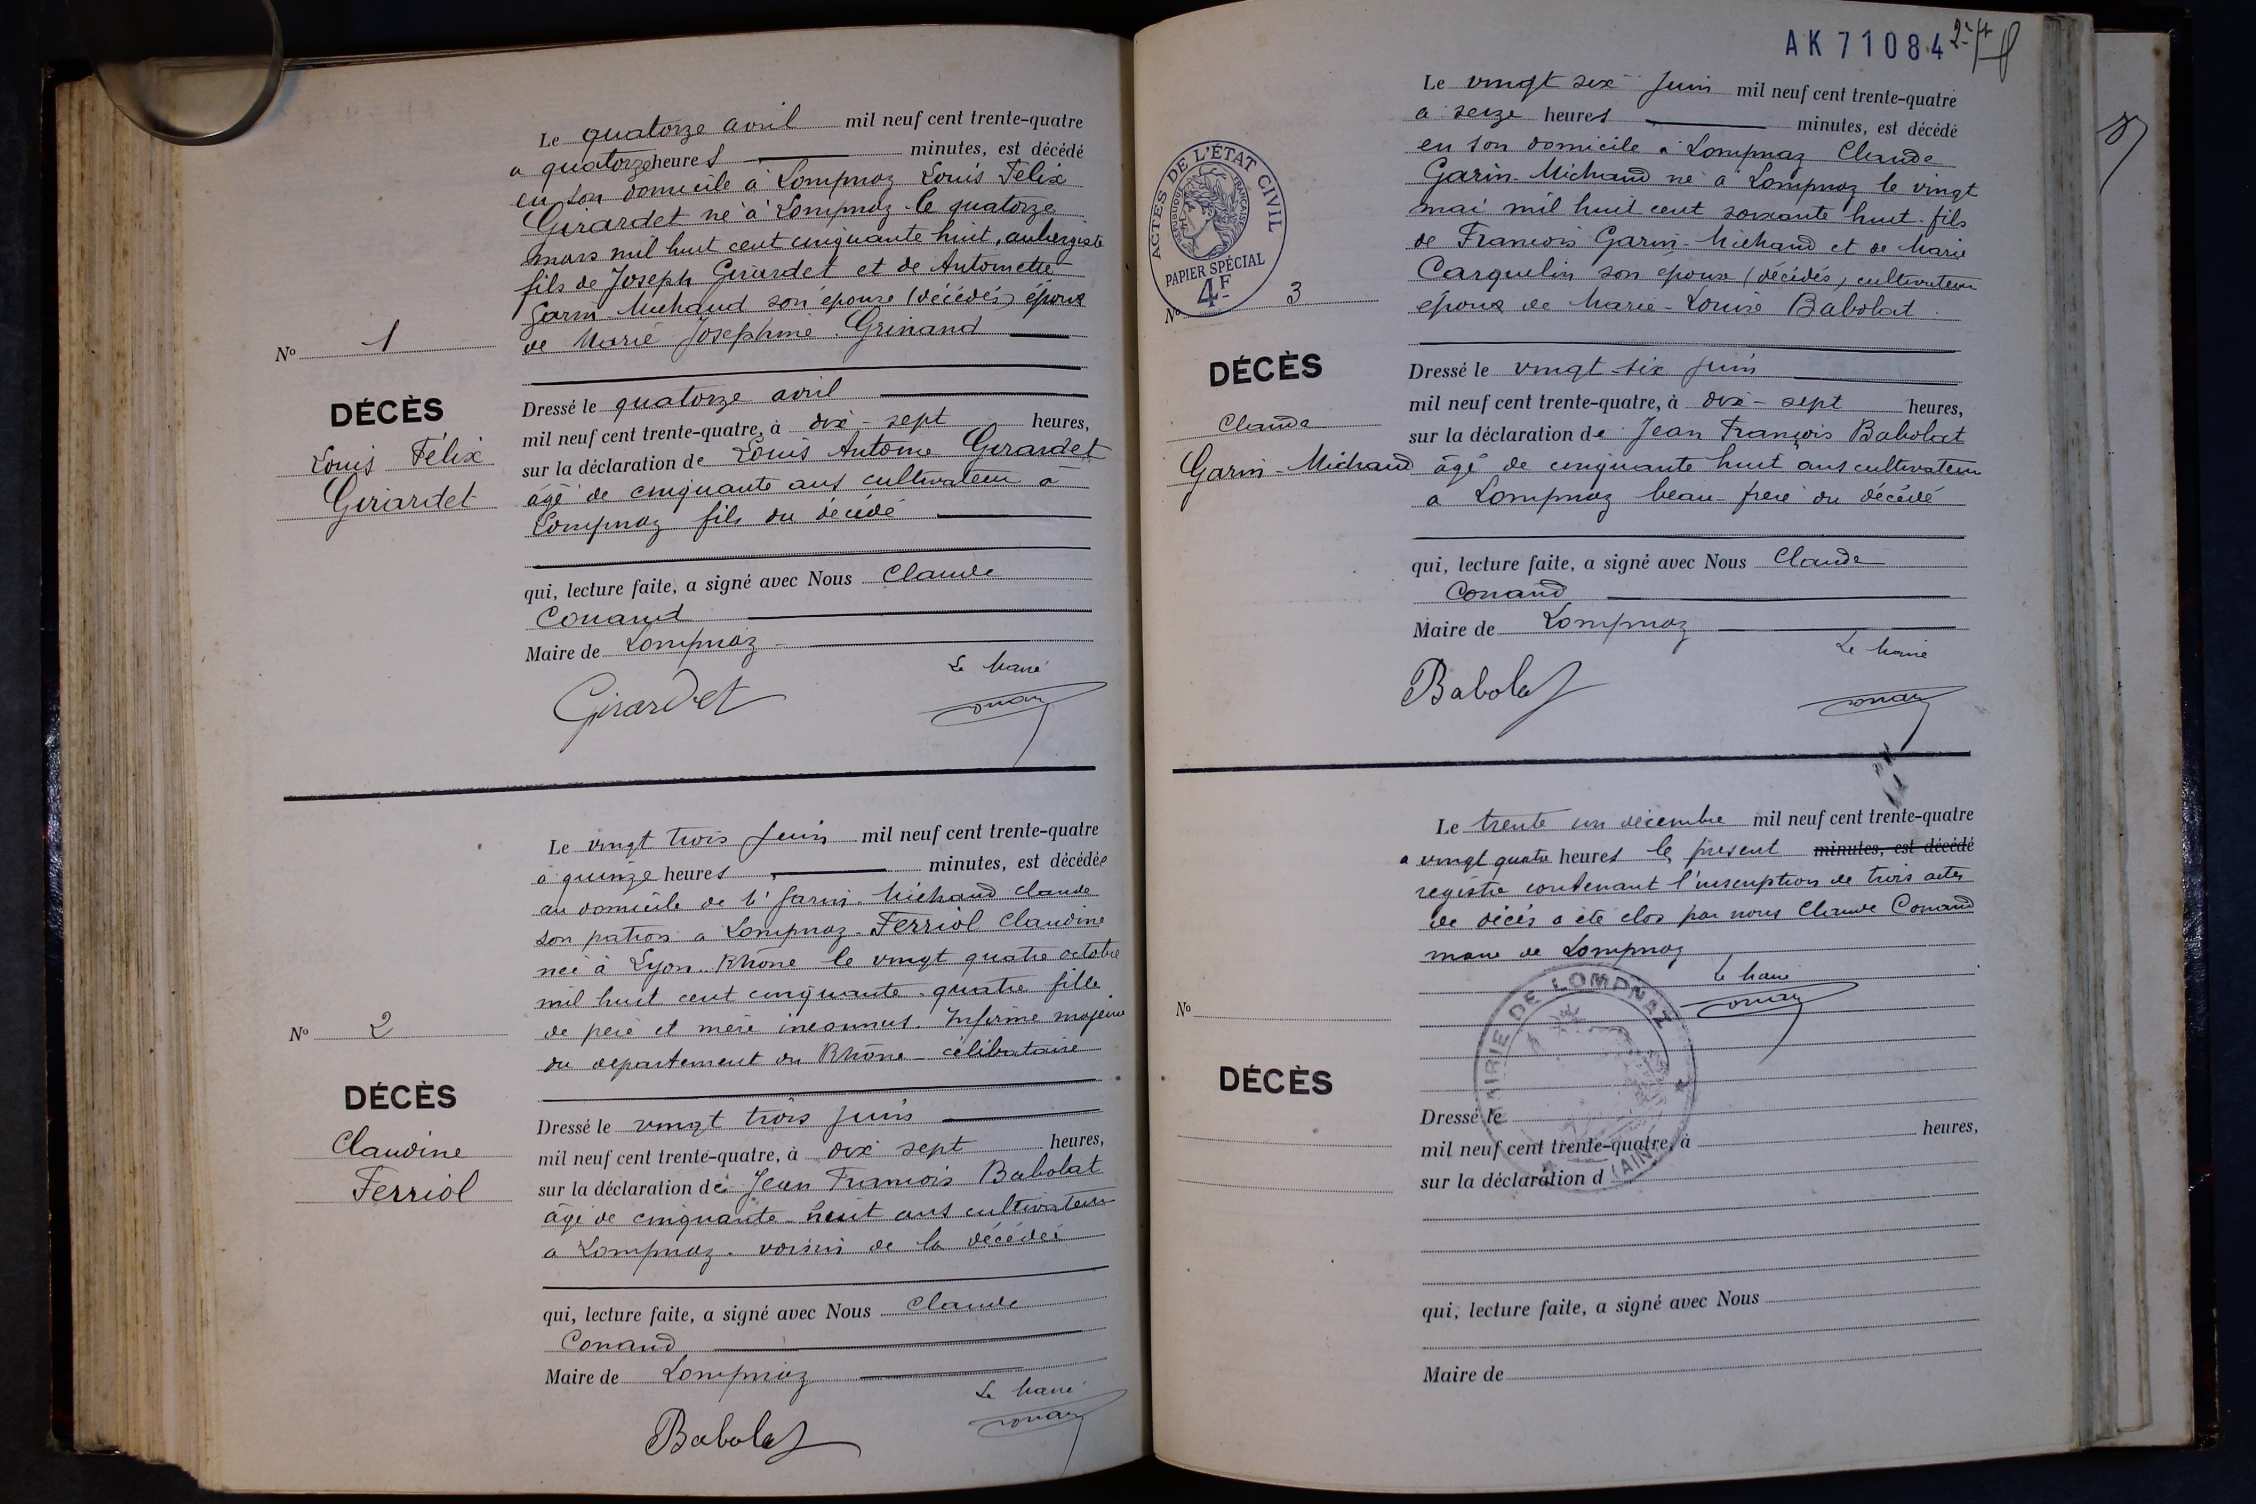 Le quatorze avril mil neuf cent trente-quatre
a quatorze heures minutes, est décédé
en son domicile à Lompnaz Louis Félix
Girardet né à Lompnaz le quatorze
mars mil huit cent cinquante huit, aubergiste
fils de Joseph Girardet et de Antoinette
Garin-Michaud son épouse (décédés) époux
de Marie Josephine Grinand
No 1
DÉCÈS
Louis Félix
Girardet
Dressé le quatorze avril
mil neuf cent trente-quatre, à dix-sept heures,
sur la déclaration de Louis Antoine Girardet
âgé de cinquante ans cultivateur à
Lompnaz fils du décédé
qui, lecture faite, a signé avec Nous Claude
Conand
Maire de Lompnaz
Le Maire
Girardet
Conand
Le vingt trois Juin mil neuf cent trente-quatre
à quinze heures minutes, est décédée
au domicile de Mr Garin-Michaud Claude
son patron a Lompnaz Ferriol Claudine
née à Lyon Rhône le vingt quatre octobre
mil huit cent cinquante quatre fille
de père et mère inconnus. Infirme majeure
du departement du Rhône - célibataire
No 2
DÉCÈS
Claudine
Ferriol
Dressé le vingt trois Juin
mil neuf cent trente-quatre, à dix sept heures,
sur la déclaration de Jean François Babolat
âgé de cinquante-huit ans cultivateur
a Lompnaz. voisin de la décédée
qui, lecture faite, a signé avec Nous Claude
Conand
Maire de Lompnaz
Le Maire
Babolat
Conand
AK 71084
Le vingt six Juin mil neuf cent trente-quatre
a seize heures minutes, est décédé
en son domicile à Lompnaz Claude
Garin-Michaud né à Lompnaz le vingt
mai mil huit cent soixante huit fils
de François Garin-Michaud et de Marie
Carquelin son épouse (décédés) cultivateur
époux de Marie-Louise Babolat
ACTES DE L'ÉTAT CIVIL
RÉPUBLIQUE FRANÇAISE
PAPIER SPÉCIAL
4F
No 3
DÉCÈS
Claude
Garin-Michaud
Dressé le vingt-six Juin
mil neuf cent trente-quatre, à dix-sept heures,
sur la déclaration de Jean François Babolat
âgé de cinquante huit ans cultivateur
a Lompnaz beau-frère du décédé
qui, lecture faite, a signé avec Nous Claude
Conand
Maire de Lompnaz
Le Maire
Babolat
Conand
Le trente un décembre mil neuf cent trente-quatre
a vingt quatre heures le présent minutes, est décédé
registre contenant l'inscription de trois actes
de décès a été clos par nous Claude Conand
maire de Lompnaz
Le Maire
Conand
MAIRIE DE LOMPNAZ
(AIN)
No
DÉCÈS
Dressé le
mil neuf cent trente-quatre, à heures,
sur la déclaration d
qui, lecture faite, a signé avec Nous
Maire de